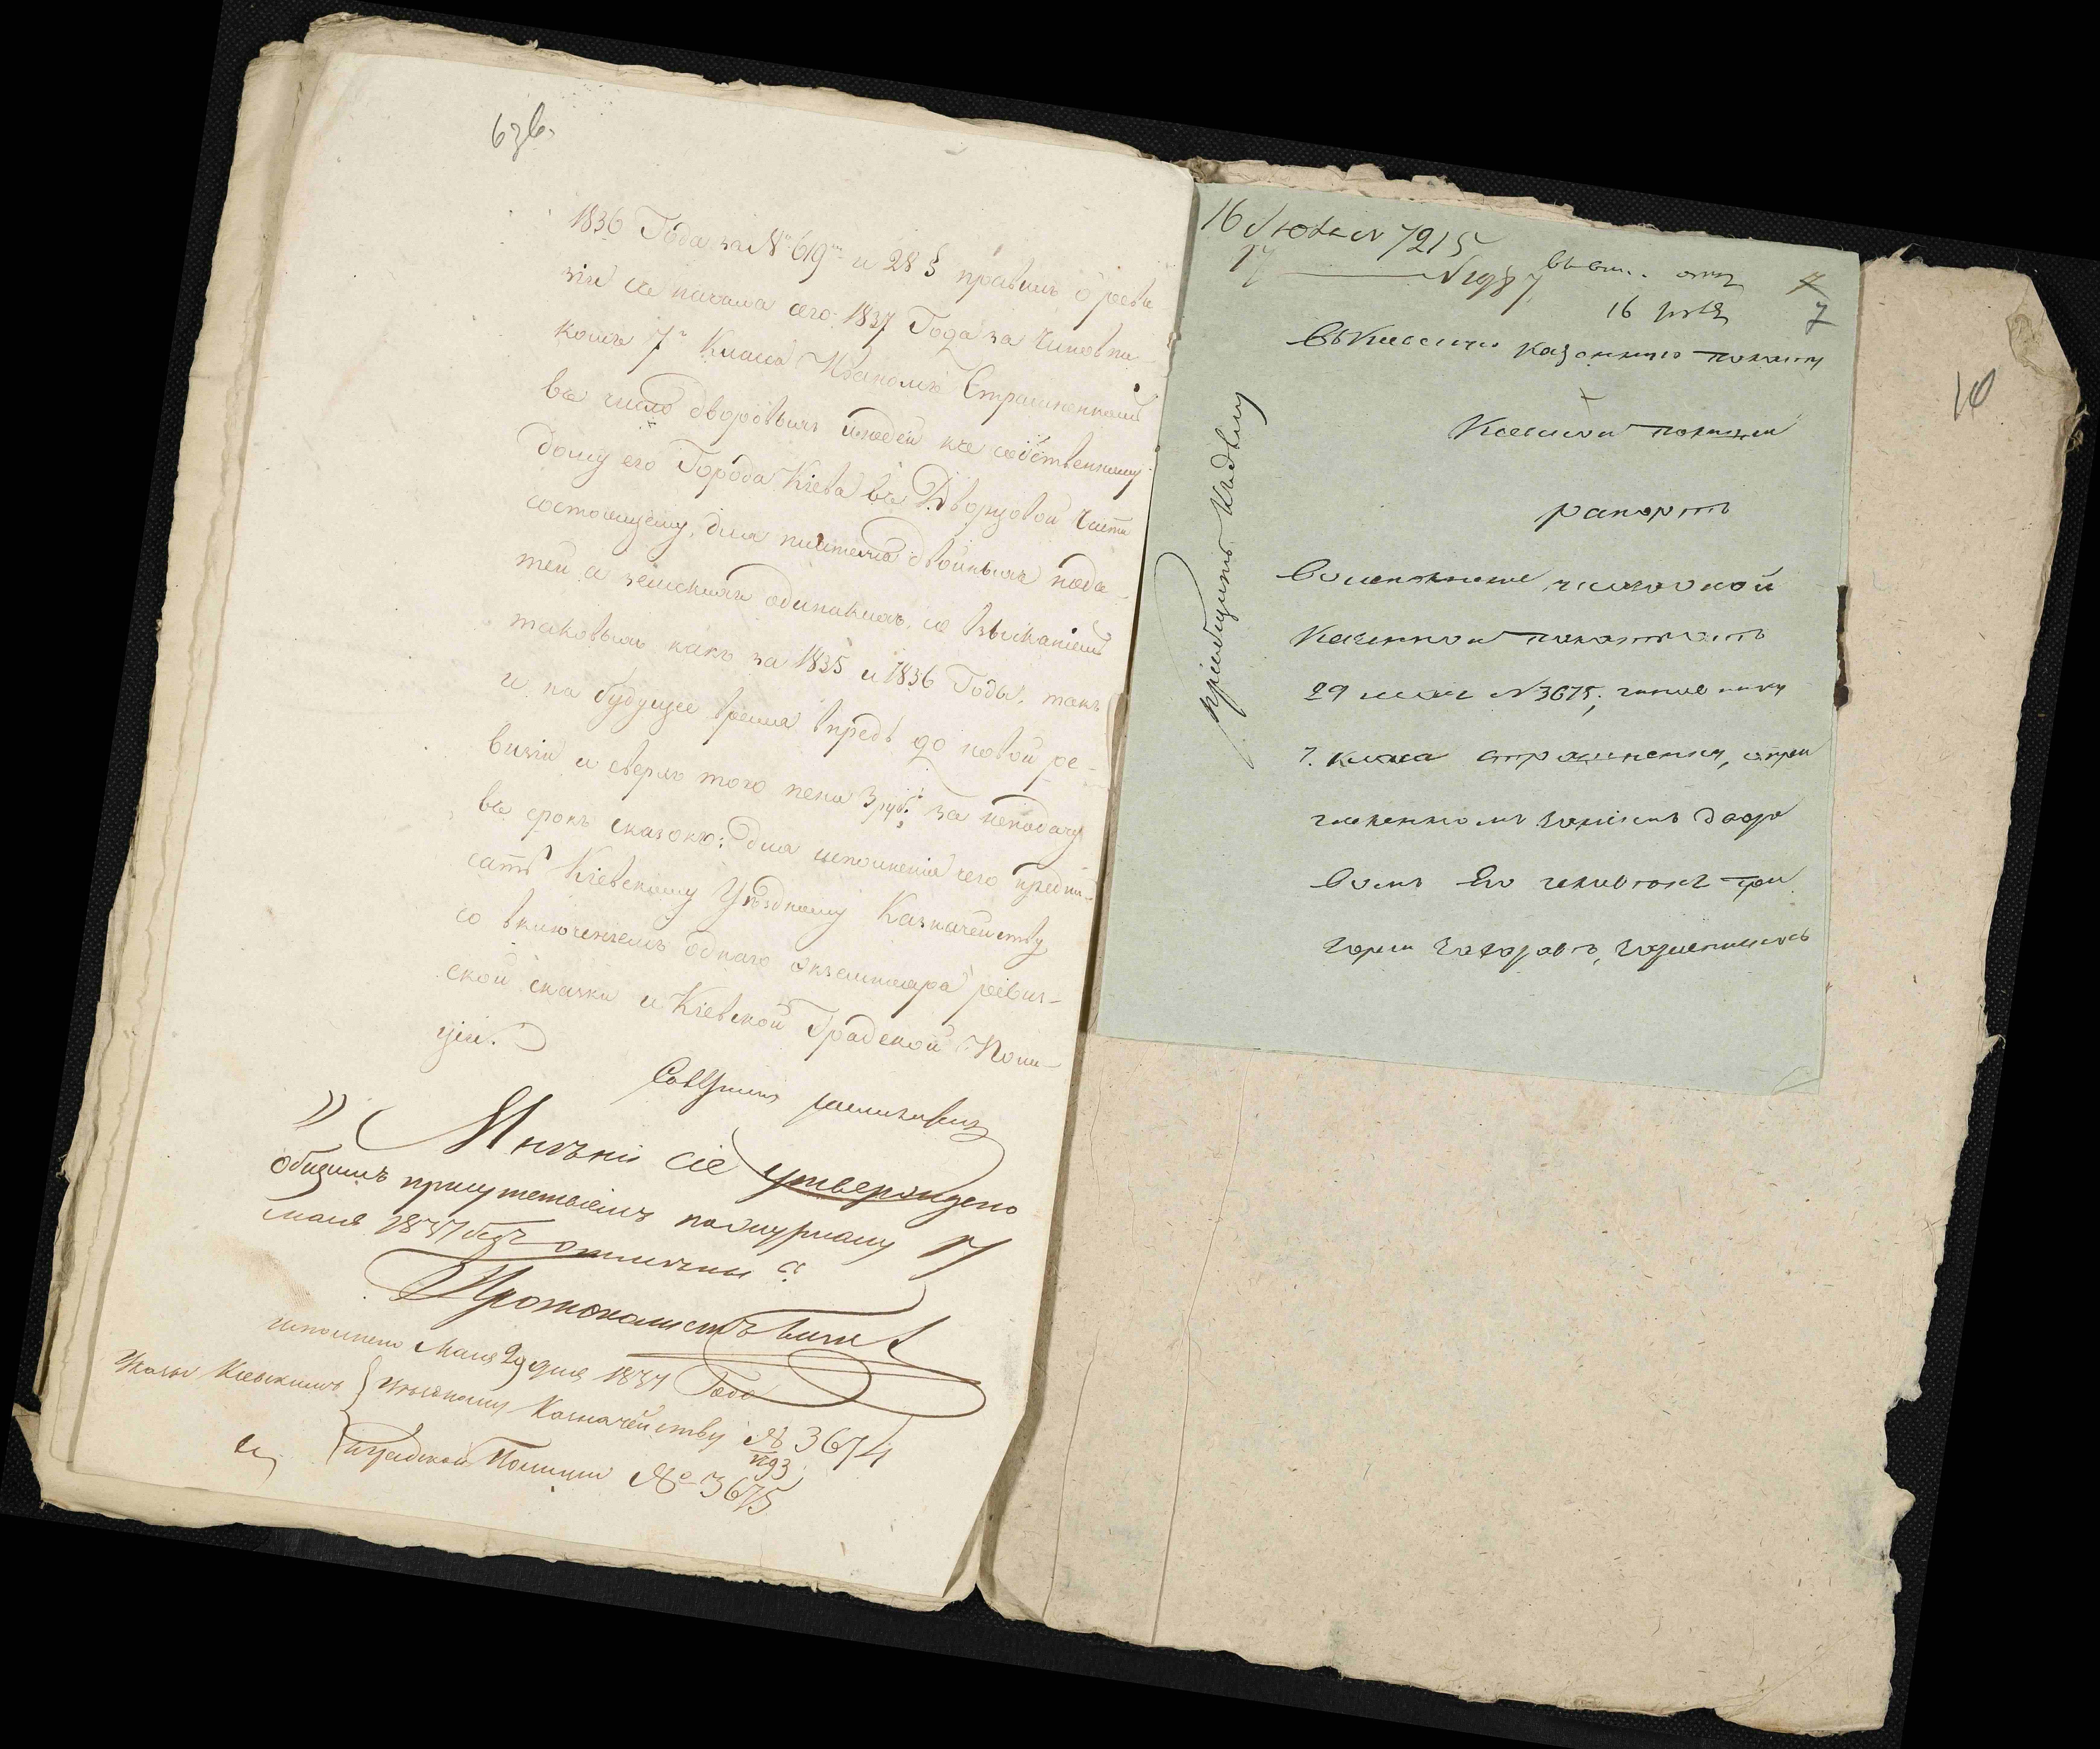 6 зв.
1836 Года за № 619м и 28 § правилъ о реви
зіи съ начала сего 1837 Года за чиновни-
комъ 7го Класса Иваномъ Страшенкомъ
въ число дворовыхъ людей къ собственному
дому его Города Кіева въ Дворцовой части
состоящему, для платежа двойныхъ пода-
тей а земскихъ одинакихъ, со взысканіемъ
таковыхъ какъ за 1835 и 1836 Годы, такъ
и на будущее время впредь до новой ре-
визіи и сверхъ того пени 3 руб: за неподачу
въ срокъ сказокъ: для исполненія чего предпи-
сать Кіевскому Уѣздному Казначейству
со включеніемъ однаго экземпляра ревиз-
ской сказки и Кіевской Градской Поли-
ціи.
Совѣтникъ
Мнѣніе сіе утверждено
общимъ присутствіемъ по журналу 17
мая 1837 безъ отмѣны
Протоколистъ
исполнено Мая 29 дня 1837 Года
Указы Кіевскимъ Уѣздному Казначейству № 3674
и Градской Полиціи № 3675
16 Июня № 7215
17 № 1987
16
7
10
Въ Кіевскую казенную палату
Кіевской полиціи
рапортъ
Казенной палаты отъ
29 мая № 3675, чиновнику
7. класса Страшенку, о при
численномъ за нимъ дворо
вомъ его человѣкѣ
пріобщить къ дѣлу